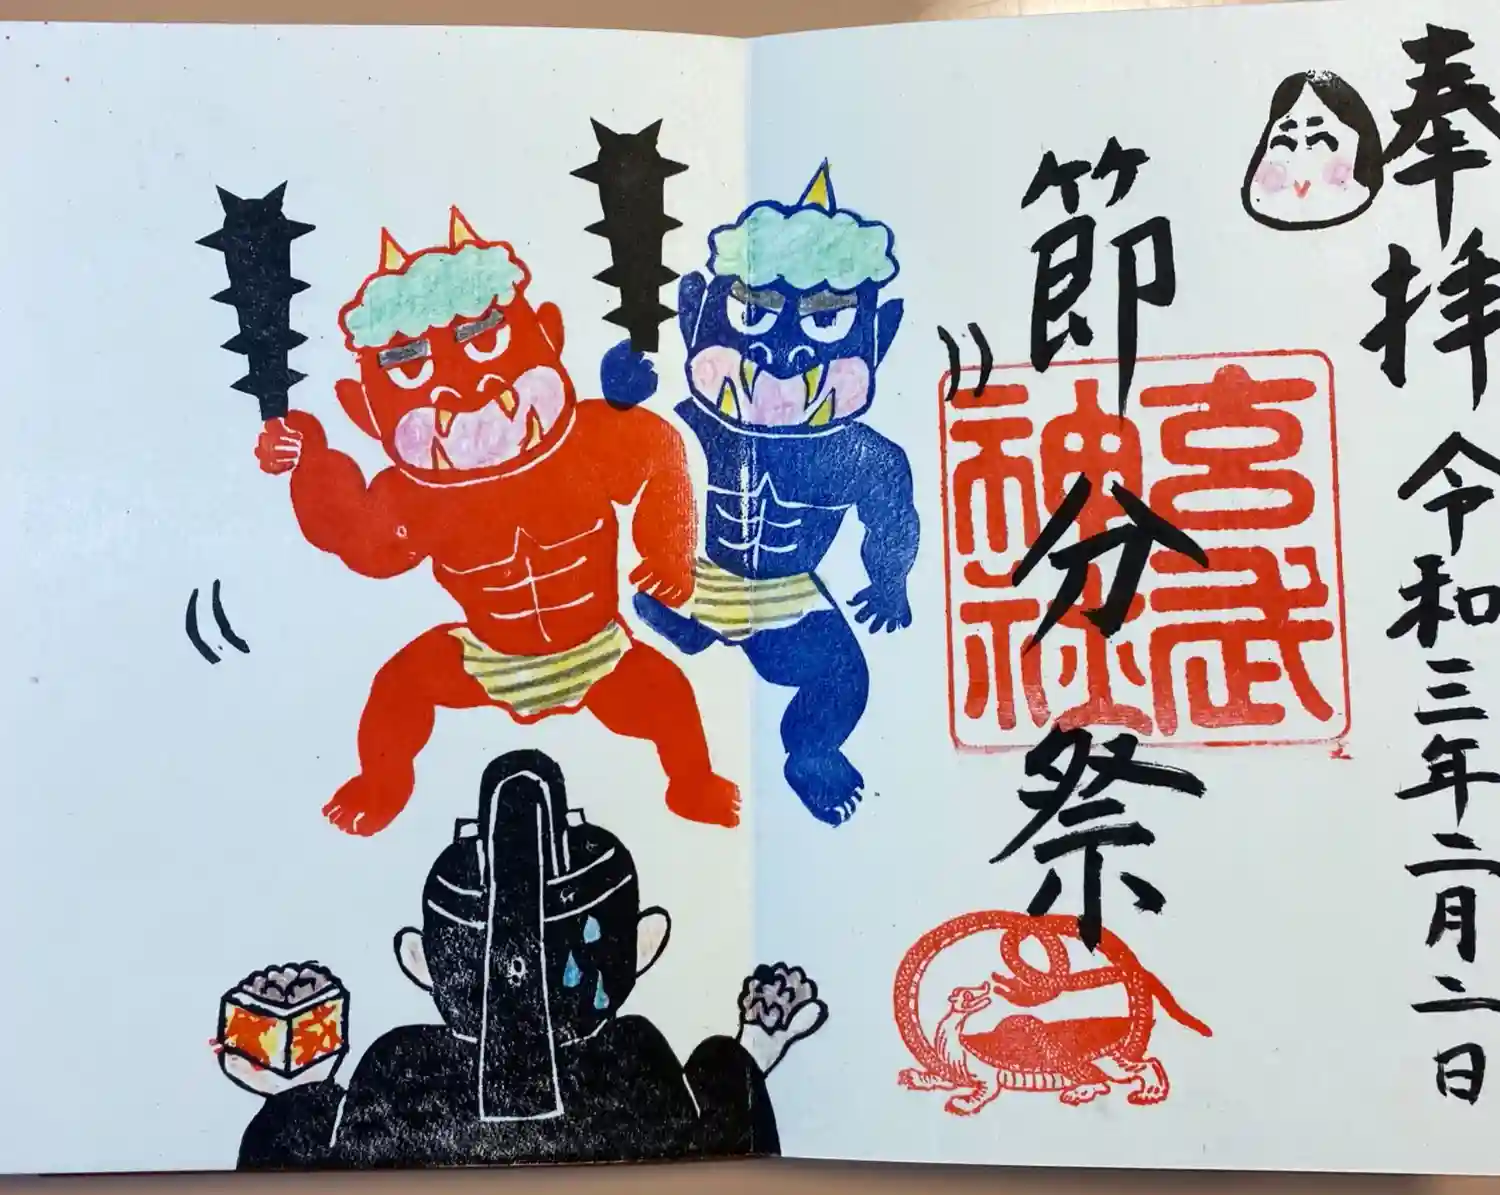 奉拝 令和三年二月二日
節分祭
玄武
神社